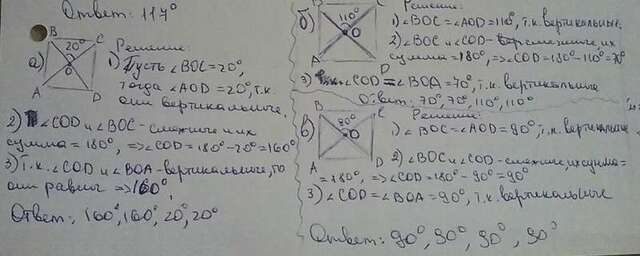 Ответ: 117°
а)
B C
20°
O
A D
Решение:
1) Пусть ∠BOC=20°,
тогда ∠AOD=20°, т.к.
они вертикальные.
2) ∠COD и ∠BOC - смежные и их
сумма = 180°, => ∠COD = 180°-20°=160°
3) Т.к. ∠COD и ∠BOA - вертикальные, то
они равны => 160°
Ответ: 160°, 160°, 20°, 20°
б)
110°
O
A D
Решение:
1) ∠BOC = ∠AOD = 110°, т.к. вертикальные.
2) ∠BOC и ∠COD - смежные, их
сумма = 180°, => ∠COD = 180°-110°=70°
3) ∠COD = ∠BOA = 70°, т.к. вертикальные
Ответ: 70°, 70°, 110°, 110°
в)
B C
90°
O
A D
Решение:
1) ∠BOC = ∠AOD = 90°, т.к. вертикальные
2) ∠BOC и ∠COD - смежные, их сумма=
= 180°, => ∠COD = 180° - 90° = 90°
3) ∠COD = ∠BOA = 90°, т.к. вертикальные
Ответ: 90°, 90°, 90°, 90°